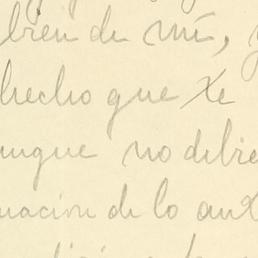 bien de mí, y
hecho que Xe
unque no debie
uación de lo anx